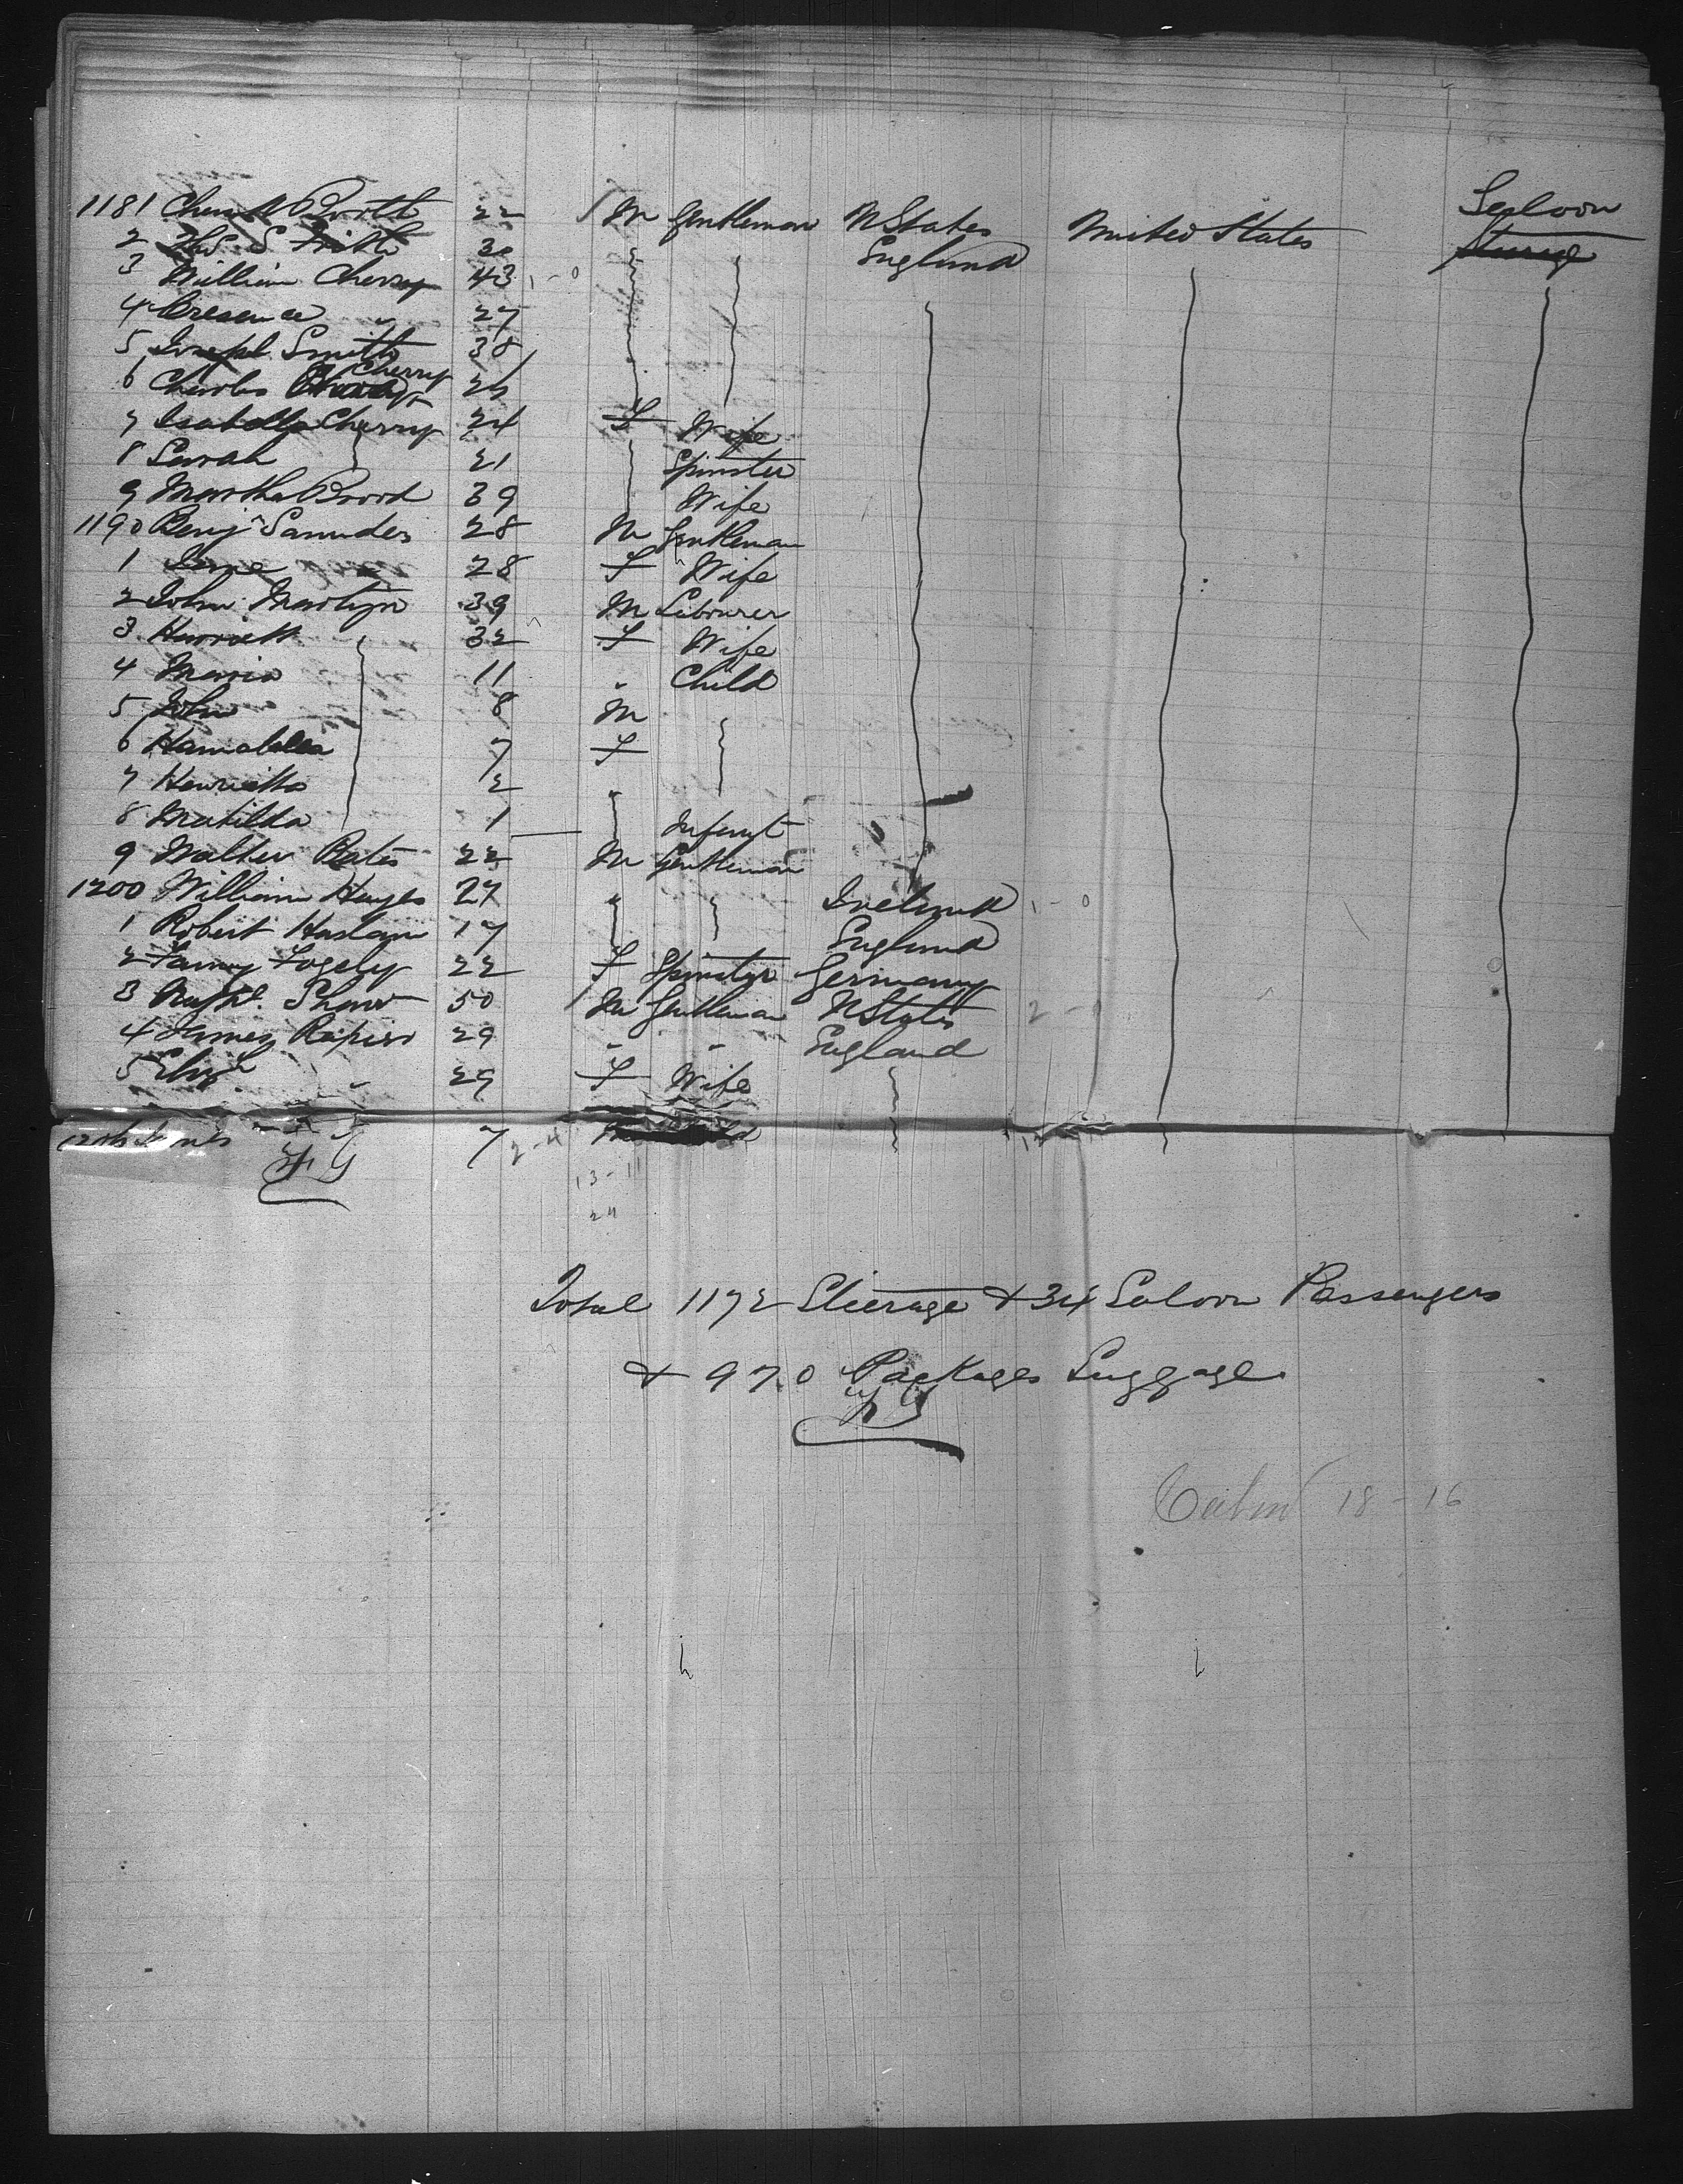 Saloon
1181 22 M Gentleman U States United States Steerage
2 Thos S Frith 30 England
3 William Cherry 43 1-0
4 27
5 Joseph Smith 38
Cherry
6 Charles 26
7 Isabella Cherry 24 F Wife
8 Sarah 21 Spinster
9 Martha Brood 39 Wife
1190 Benj Saunders 28 M Gentleman
1 Jane 28 F Wife
2 John Martyn 39 M Labourer
3 Harriett 32 F Wife
4 Maria 11 " Child
5 John 8 M
6 7 F
7 Henrietta 2
8 Matilda 1 Infant
9 Walter Bates 22 M Gentleman
1200 William Hayes 27 Ireland 1-0
1 Robert Haslam 17 England
2 Fanny Fogely 22 F Spinster Germany
3 Shaw 50 M Gentleman U States 2-
4 James Rapier 29 " " England
5 Eliz " 29 F Wife
1206 7 2-4
13-11
24
Total 1172 Steerage + 34 Saloon Passengers
+ 970 Packages Luggage
Cabin 18-16